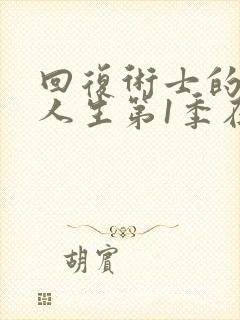 回復術士的
人生第1季在
胡賓